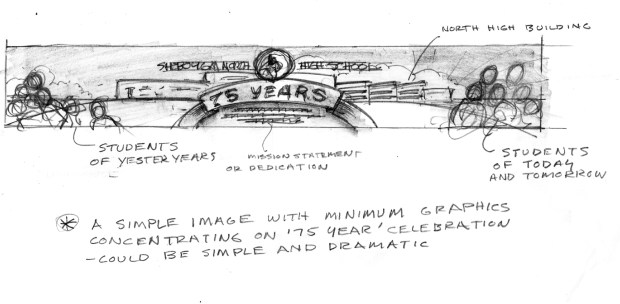 NORTH HIGH BUILDING
SHEBOYGAN NORTH HIGH SCHOOL
75 YEARS
STUDENTS
OF YESTERYEARS
MISSION STATEMENT
OR DEDICATION
STUDENTS
OF TODAY
AND TOMORROW
A SIMPLE IMAGE WITH MINIMUM GRAPHICS
CONCENTRATING ON '75 YEAR' CELEBRATION
- COULD BE SIMPLE AND DRAMATIC